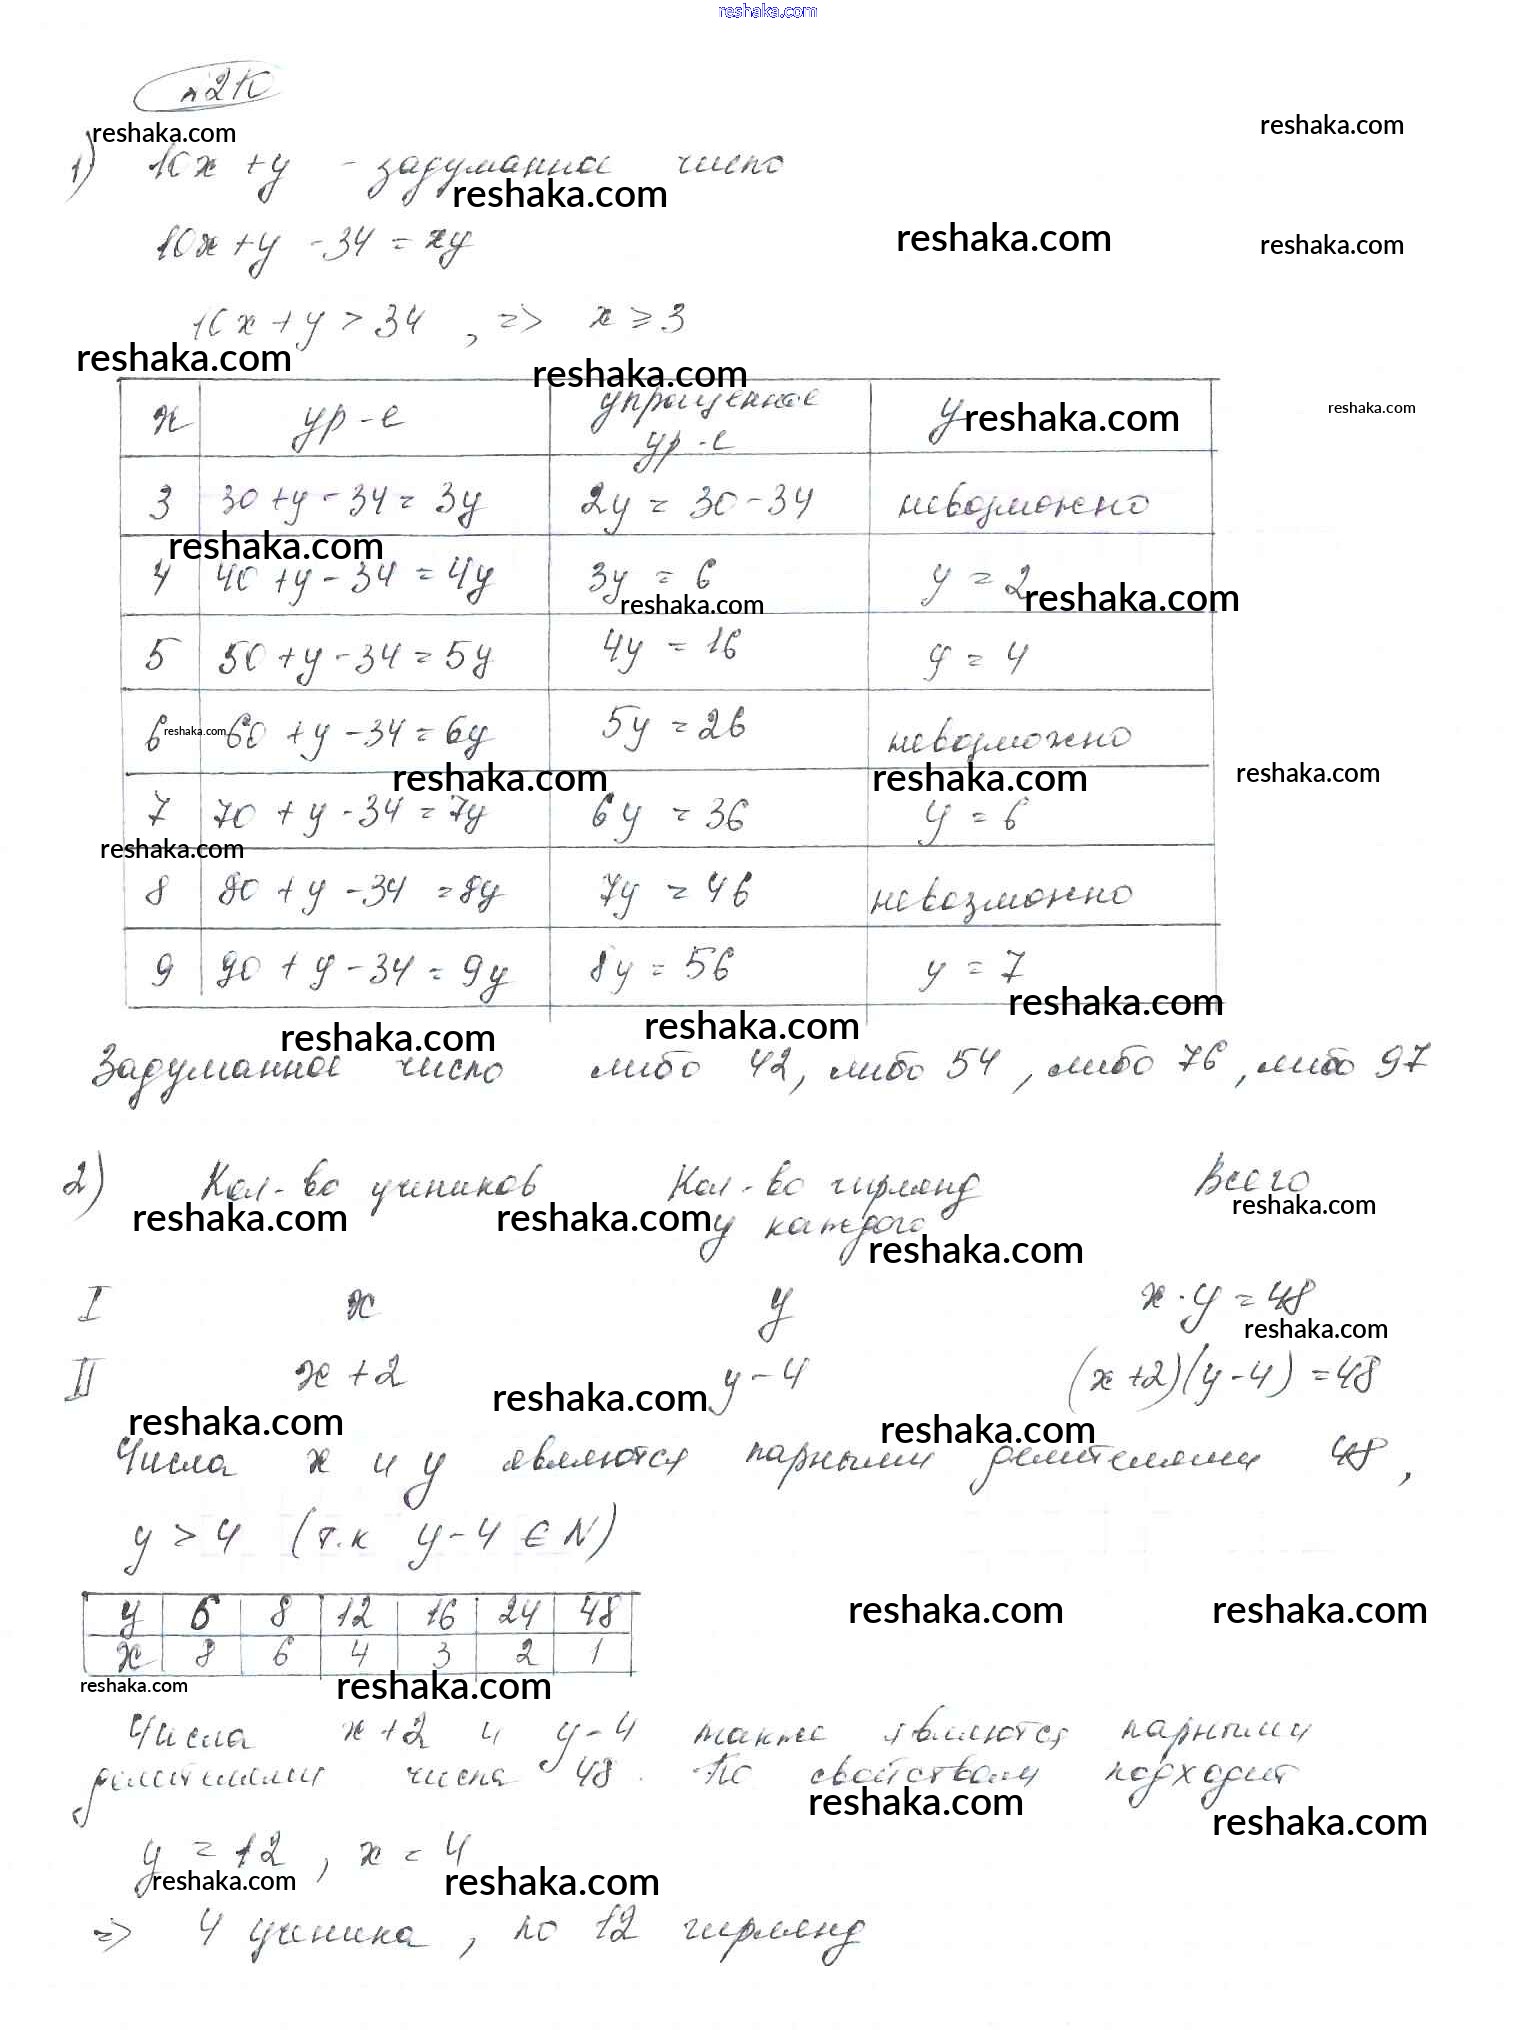 reshaka.com
№2К
reshaka.com reshaka.com
1) 10x + y - задуманное число
reshaka.com
10x + y - 34 = xy
reshaka.com reshaka.com
10x + y > 34 , => x ≥ 3
reshaka.com reshaka.com
x ур-е упрощенное ур-е y reshaka.com reshaka.com
3 30 + y - 34 = 3y 2y = 30 - 34 невозможно
reshaka.com
4 40 + y - 34 = 4y 3y = 6 y = 2
reshaka.com reshaka.com
5 50 + y - 34 = 5y 4y = 16 y = 4
6 reshaka.com 60 + y - 34 = 6y 5y = 26 невозможно
reshaka.com reshaka.com reshaka.com
7 70 + y - 34 = 7y 6y = 36 y = 6
reshaka.com
8 80 + y - 34 = 8y 7y = 46 невозможно
9 90 + y - 34 = 9y 8y = 56 y = 7
reshaka.com
reshaka.com reshaka.com
Задуманное число либо 42, либо 54, либо 76, либо 97
2) Кол-во учеников Кол-во гирлянд Всего
reshaka.com reshaka.com у каждого reshaka.com
reshaka.com
I x y x · y = 48
reshaka.com
II x + 2 y - 4 (x + 2)(y - 4) = 48
reshaka.com reshaka.com reshaka.com
Числа x и y являются парными делителями 48,
y > 4 (т.к y - 4 ∈ N)
y 6 8 12 16 24 48 reshaka.com reshaka.com
x 8 6 4 3 2 1
reshaka.com reshaka.com
Числа x+2 и y-4 также являются парными
делителями числа 48. По свойствам подходит
reshaka.com reshaka.com
y = 12, x = 4
reshaka.com reshaka.com
=> 4 ученика, по 12 гирлянд